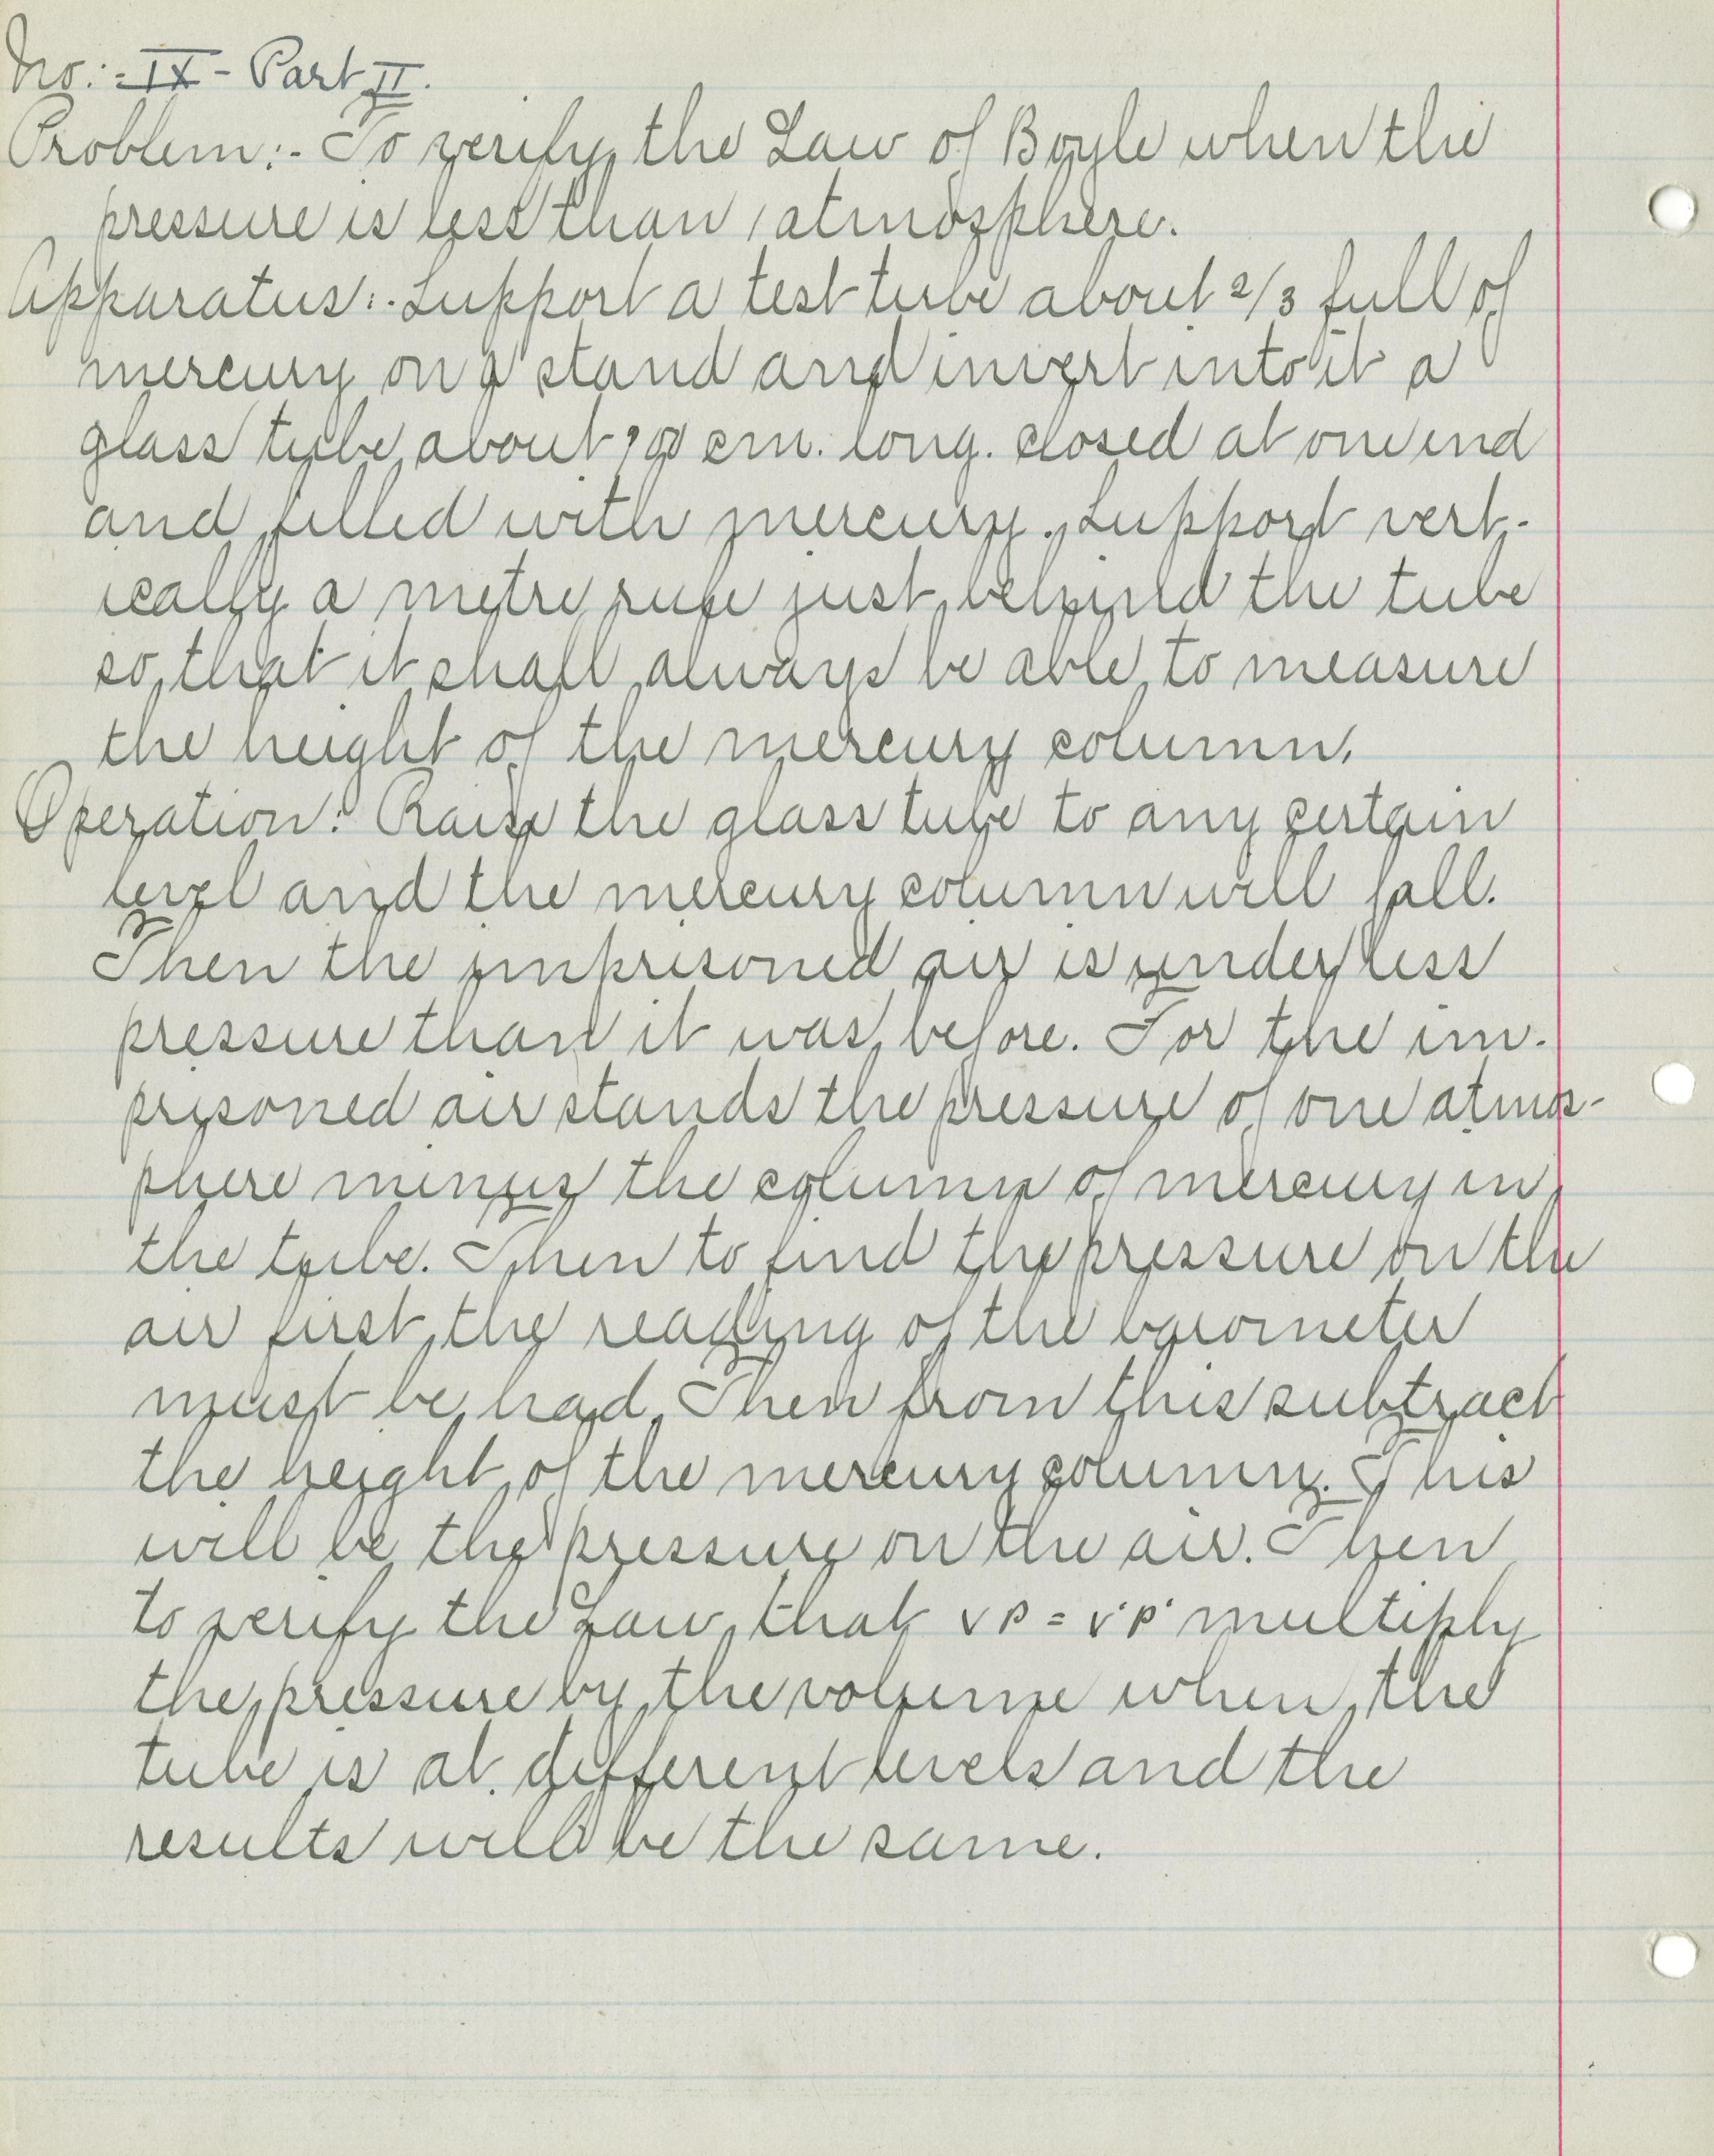 No:- IX - Part II.
Problem:- To verify the Law of Boyle when the
pressure is less than 1 atmosphere.
Apparatus:- Support a test tube about 2/3 full of
mercury on a stand and invert into it a
glass tube about 100 cm. long. closed at one end
and filled with mercury. Support vert-
ically a metre rule just behind the tube
so that it shall always be able to measure
the height of the mercury column.
Operation:- Raise the glass tube to any certain
level and the mercury column will fall.
Then the imprisoned air is under less
pressure than it was before. For the im-
prisoned air stands the pressure of one atmos-
phere minus the column of mercury in
the tube. Then to find the pressure on the
air first the reading of the barometer
must be had. Then from this subtract
the height of the mercury column. This
will be the pressure on the air. Then
to verify the Law that VP = V'P' multiply
the pressure by the volume when the
tube is at different levels and the
results will be the same.